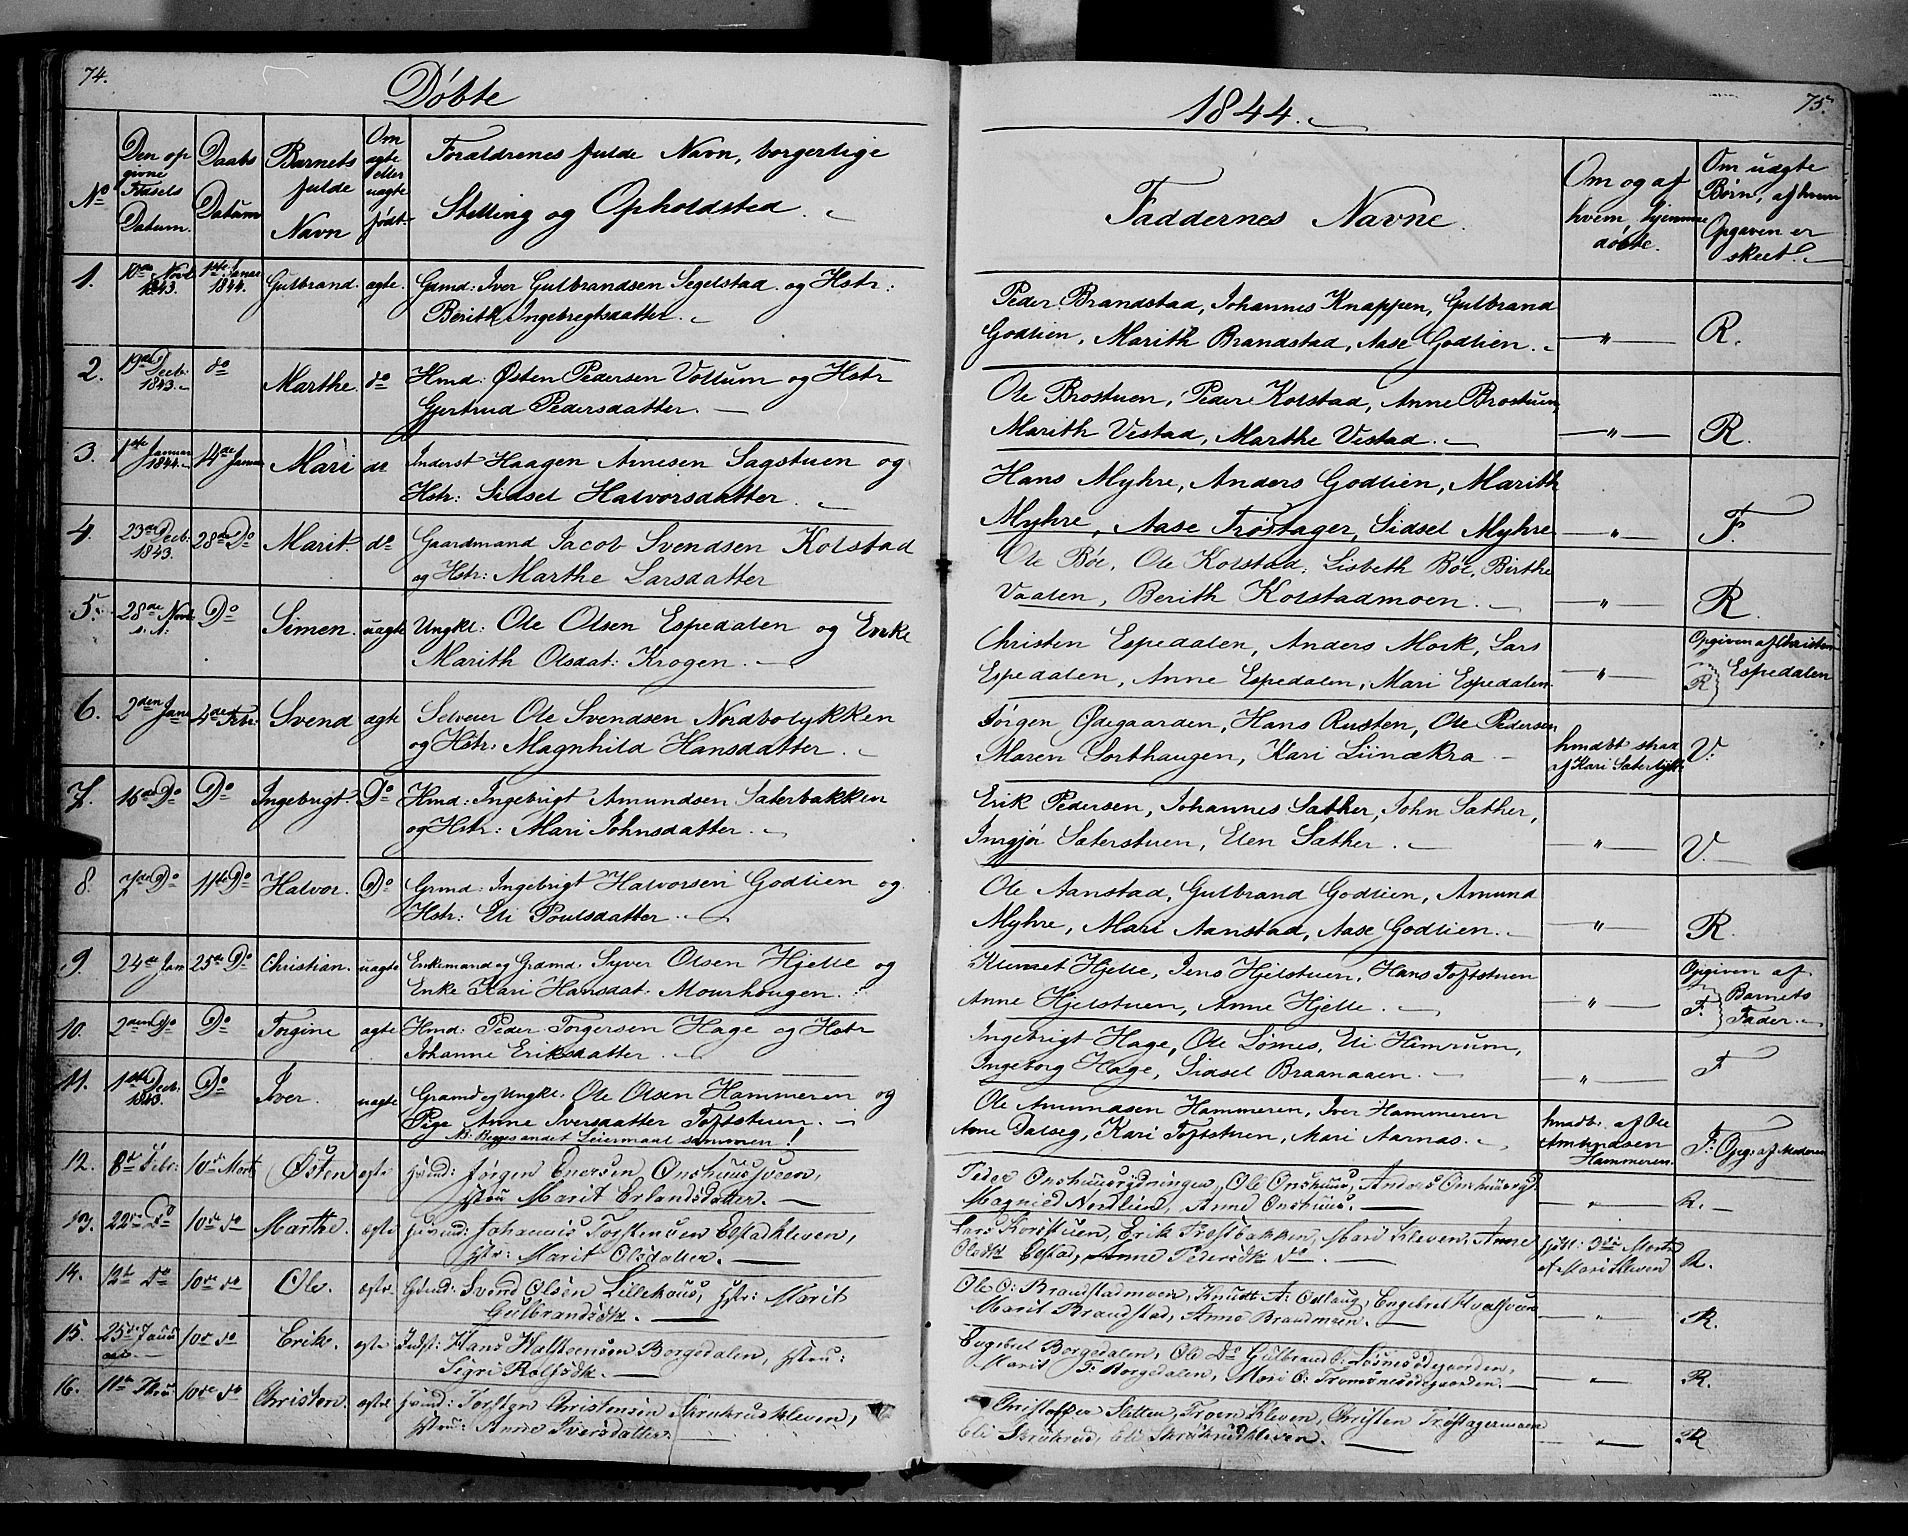 74.
Döbte
No
Den op
givne
Fødsels
Datum.
Daabs
Datum
Barnets
fulde
Navn
Om
ægte
eller
uægte
født.
Forældrenes fulde Navn, borgerlige
Stilling og Opholdsted.
1.
10de Novb.
1843.
1ste Januar
1844.
Gulbrand.
ægte.
Gdmd: Iver Gulbrandsen Segelstad og Hstr:
Berith Ingebregtsdatter.
2.
19de Decb.
1843.
do
Marthe.
do
Hmd: Østen Pedersen Vollum og Hstr
Gjertrud Pedersdatter.
3.
1ste Januar
1844.
14de Januar
Mari
do
Inderst Haagen Arnesen Sagstuen og
Hstr: Sidsel Halvorsdatter.
4.
23de Decb.
1843.
28de Do
Marit.
do
Gaardmand Jacob Svendsen Kolstad
og Hstr: Marthe Larsdatter
5.
28de Novb
s. A:
Do
Simen.
uægte
Ungkl: Ole Olsen Espedalen og Enke
Marith Olsdat: Krogen.
6.
2den Jan
4de Febr.
Svend
ægte
Selveier Ole Svendsen Nordbolykken
og Hstr: Magnhild Hansdatter.
7.
16de Do
Do
Ingebrigt.
Do
Hmd: Ingebrigt Amundsen Sæterbakken
og Hstr: Mari Johnsdatter.
8.
7de Do
11te Do
Halvor.
Do
Grmd: Ingebrigt Halvorsen Godlien og
Hstr: Eli Poulsdatter.
9.
24de Jan
25de Do
Christian.
uægte
Enkemand og Grdmd. Syver Olsen Hjelle og
Enke Kari Hansdat. Mourhougen.
10.
2den Do
Do
Torgine
ægte
Hmd: Peder Torgersen Hage og Hstr
Johanne Eriksdatter.
11.
1ste Decb.
1843.
Do
Iver.
uægte
Grdmd og Ungkl. Ole Olsen Hammeren og
Pige Anne Iversdatter Toftstuen.
NB. Begges andet Leiermaal sammen!
12.
8de Febr.
10de Marts
Østen
ægte
Jørgen Enersen Onshuussveen,
Hstru Marit Erlandsdatter.
13.
22de Do
10de do
Marthe.
ægte
Johannes Torstensen
Hstr: Marit Olsdatter.
14.
12te do
10de do
Ole.
ægte
Svend Olsen Lillehaus, Hstr: Marit
Gulbrandsdtr.
15.
25de Janu
10de do
Erik.
ægte
Indst: Hans Halstensen Borgedalen, Hstru:
Sigri Rolfsdtr.
16.
11te
10de do
Christen.
ægte
Torsten Christensen Skrukrudkleven,
Hstru: Anne Iversdatter.
1844.
75.
Faddernes Navne.
Om og af
hvem hjemme
døbte.
Om uægte
Børn, af hvem
Opgaven er
skeet.
Peder Brandstad, Johannes Knappen, Gulbrand
Godlien, Marith Brandstad, Aase Godlien.
"
R.
Ole Brostuen, Peder Kolstad, Anne Brostuen,
Marith Vestad, Marthe Vestad.
"
R.
Hans Myhre, Anders Godlien, Marith
Myhre, Aase Trøstager, Sidsel Myhre
"
F.
Ole Böe, Ole Kolstad, Lisbeth Böe, Birthe
Vaalen, Berith Kolstadmoen.
"
R
Christen Espedalen, Anders Mork, Lars
Espedalen, Anne Espedalen, Mari Espedalen.
"
Opgiven af Christen
R Espedalen
Jörgen Ødegaarden, Hans Rusten, Ole Pedersen
Maren Sorthaugen, Kari Liinækra
hmdbt strax
af Kari Sæterlykk:
V:
Erik Pedersen, Johannes Sæther, John Sæther,
Inrgjør Sæterstuen, Elen Sæther.
"
V.
Ole Aanstad, Gulbrand Godlien, Amund
Myhre, Mari Aanstad, Aase Godlien.
"
R.
Klemet Hjelle, Jens Hjelstuen, Hans Toftstuen
Anne Hjelstuen, Anne Hjelle.
"
Opgiven af
F. Barnets
Fader.
Ingebrigt Hage, Ole Lømes, Eli Himrum,
Ingeborg Hage, Sidsel Braanaaen.
"
F
Ole Amundsen Hammeren, Iver Hammeren
Anne Dalseg, Kari Toftstuen, Mari Aarnæs.
hmdb. af Ole
Amundsen
Hammeren.
F: Opg. af Moderen
Peder Onshuusrydningen, Ole Onshuus, Anders Onshuusryd.
Magnild Nordlien, Anne Onshuus.
"
R.
Lars Korsstuen, Erik Trostbakken, Mari Kleven, Anne
Olsdtr Anne Pedersdtr do.
3de Marts
af Mari Kleven
R.
Ole O: Brandstadmoen, Knudt A: Odlaug, Engebret
Marit Brandstad, Anne Brandmoen.
"
R.
Engebret Borgedalen, Ole Do Gulbrand
Marit T: Borgedalen, Mari O:
"
R.
Christoffer Sletten, Troen Kleven, Christen Trøstagermoen
Eli Skrukrud, Eli Skrukrudkleven.
"
R